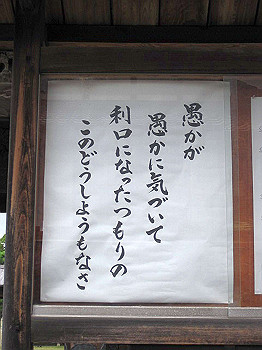 愚かが
愚かに気づいて
利口になったつもりの
このどうしようもなさ